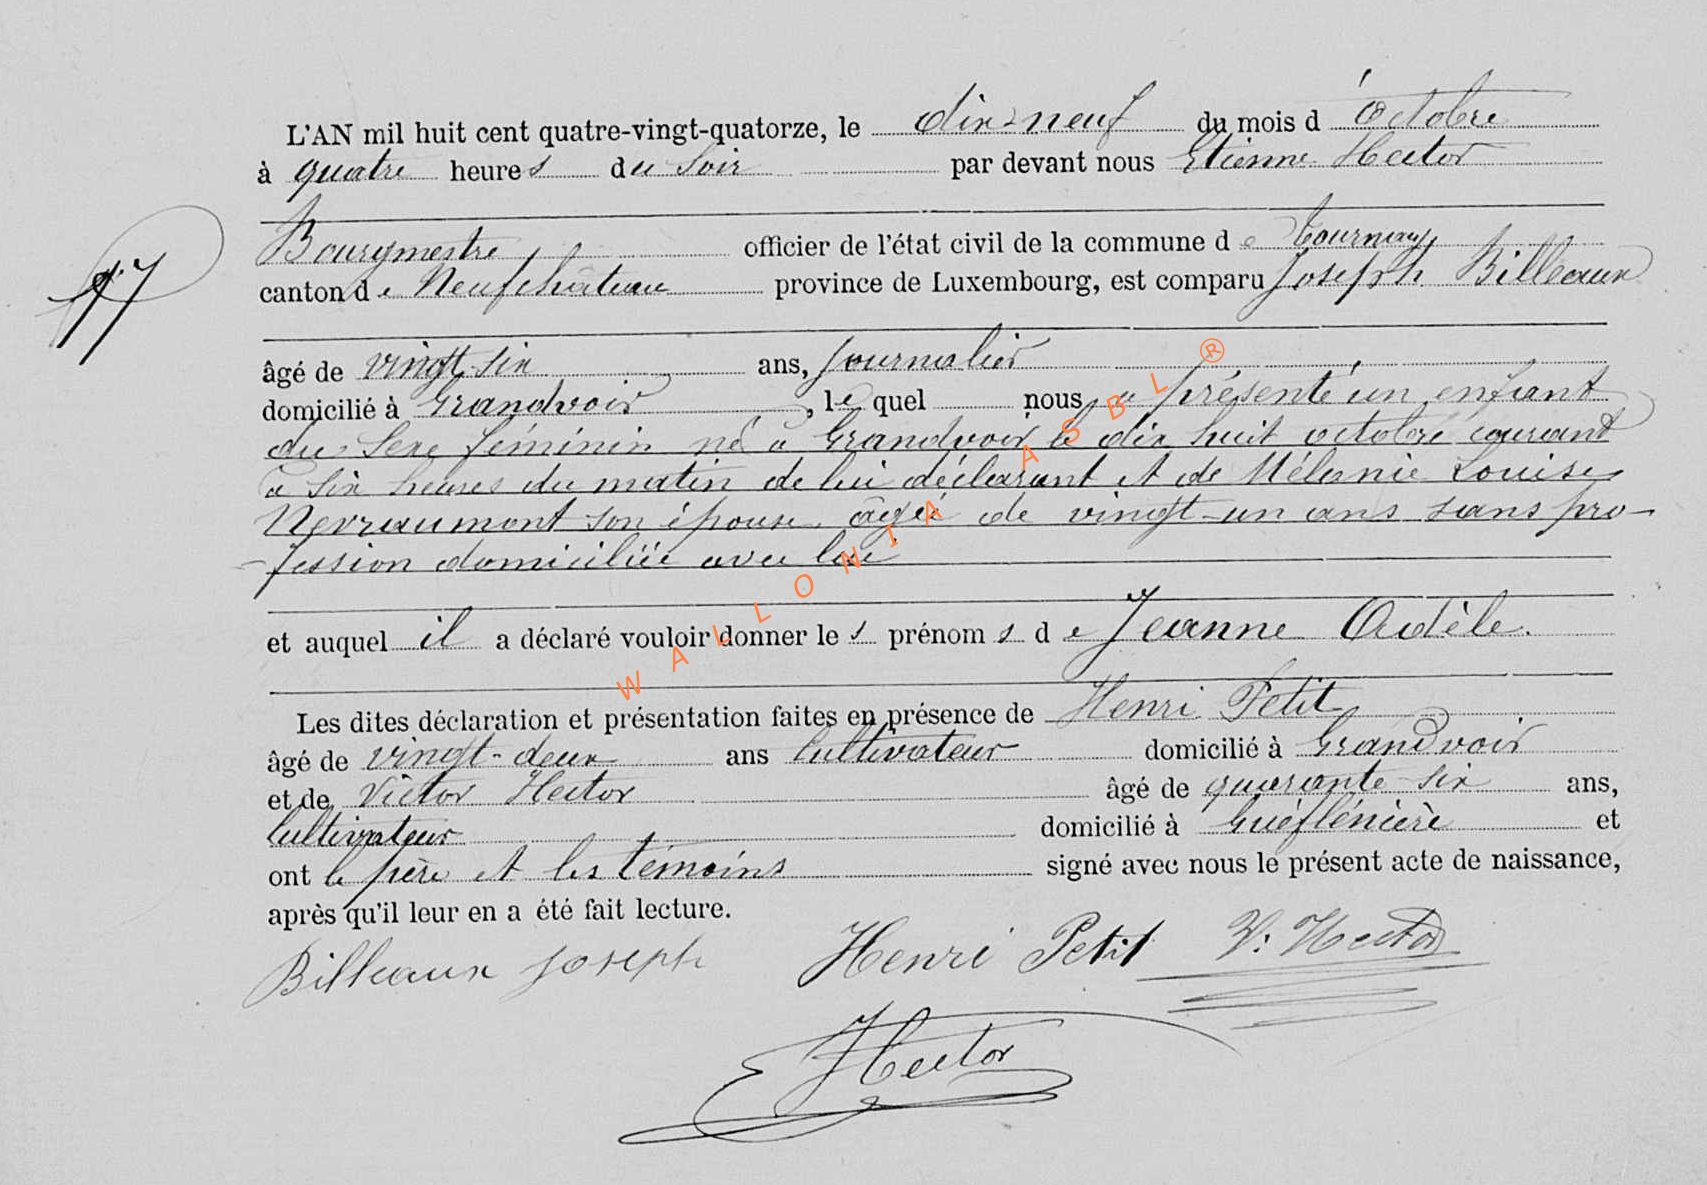 L'AN mil huit cent quatre-vingt-quatorze, le dix-neuf du mois d'Octobre
à quatre heures du Soir par devant nous Etienne Hector
Bourgmestre officier de l'état civil de la commune de Tournay
17
canton de Neufchâteau province de Luxembourg, est comparu Joseph Billeaux
âgé de vingt-six ans, journalier
domicilié à Grandvoir, le quel nous a présenté un enfant
du Sexe féminin né à Grandvoir le dix huit octobre courant
à six heures du matin de lui déclarant et de Mélanie Louise
Nevraumont son épouse âgée de vingt-un ans sans pro-
-fession domiciliée avec lui
et auquel il a déclaré vouloir donner les prénoms de Jeanne Adèle.
Les dites déclaration et présentation faites en présence de Henri Petit
âgé de vingt-deux ans Cultivateur domicilié à Grandvoir
et de Victor Hector âgé de quarante six ans,
Cultivateur domicilié à et
ont le père et les témoins signé avec nous le présent acte de naissance,
après qu'il leur en a été fait lecture.
Billeaux Joseph Henri Petit V. Hector
Hector
WALLONIA ASBL ®